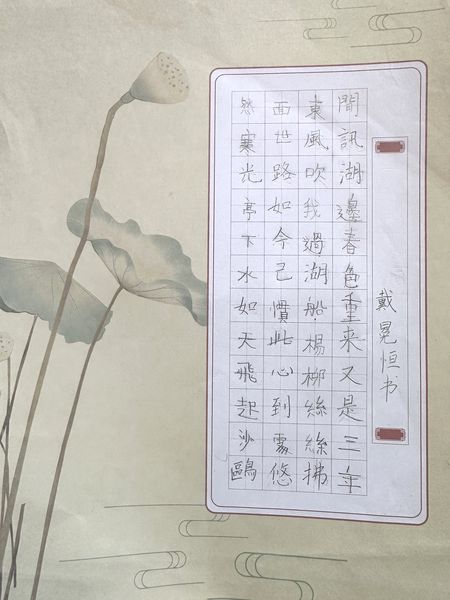 戴冕恒书
間訊湖邊春色重来又是三年
東風吹我過湖船楊柳絲絲拂
面世路如今己慣此心到處悠
然寒光亭下水如天飛起沙鷗